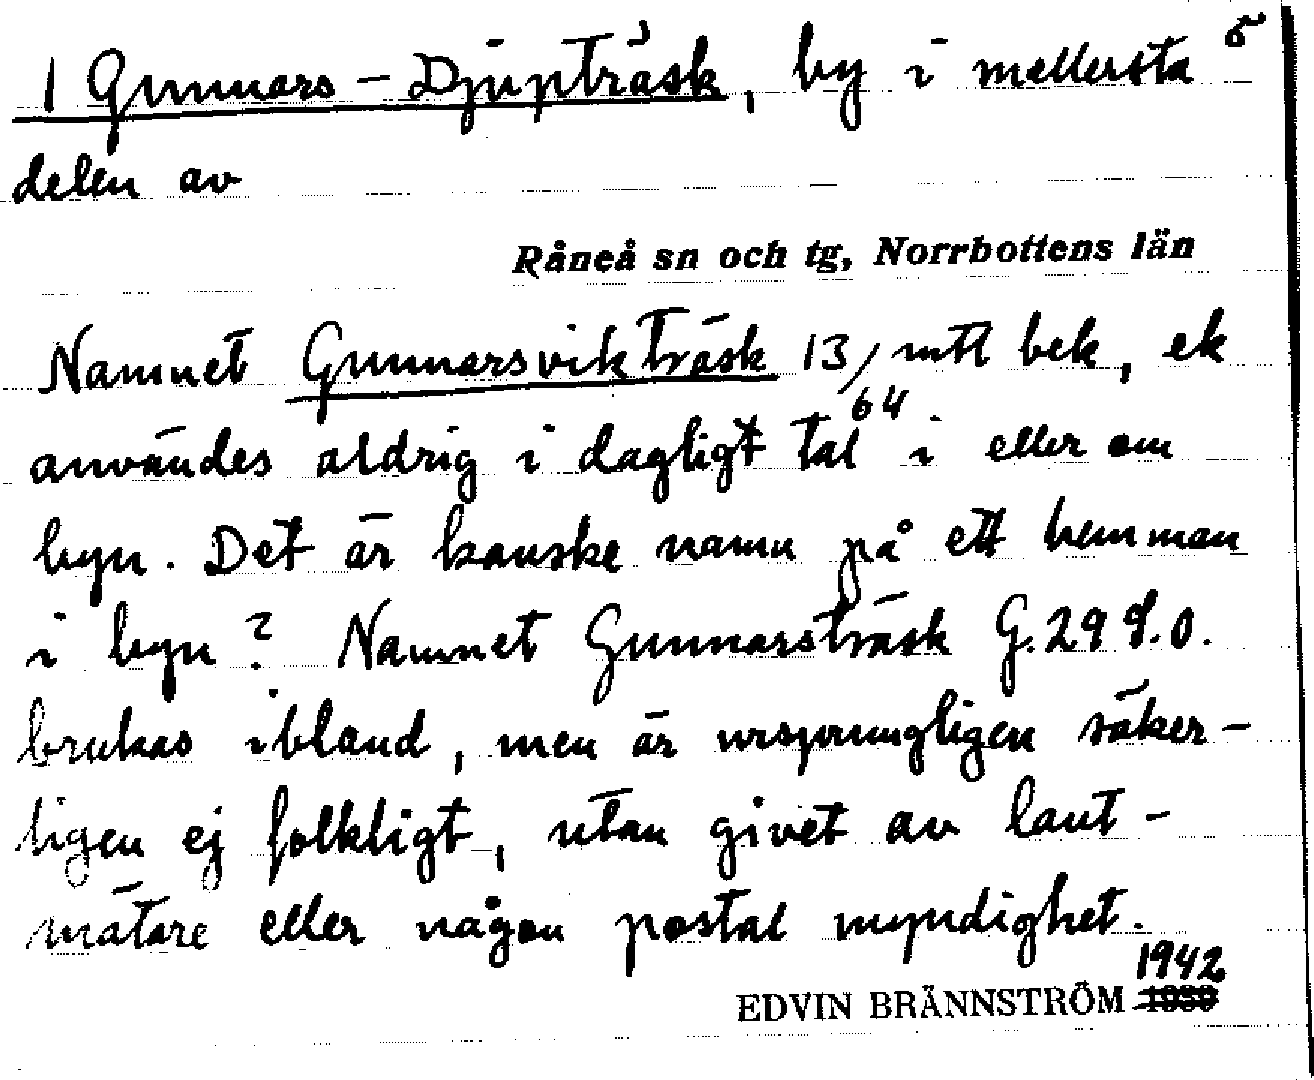 5
1 Gunnars-Djupträsk, by i mellersta
delen av
Råneå sn och tg, Norrbottens län
Namnet Gunnarsvikträsk 13/64 mtl bek, ek
användes aldrig i dagligt tal i eller om
byn. Det är kanske namn på ett hemman
i byn? Namnet Gunnarsträsk G. 29 8.0.
brukas ibland, men är ursprungligen säker-
ligen ej folkligt, utan givet av lant-
mätare eller någon postal myndighet.
1942
EDVIN BRÄNNSTRÖM